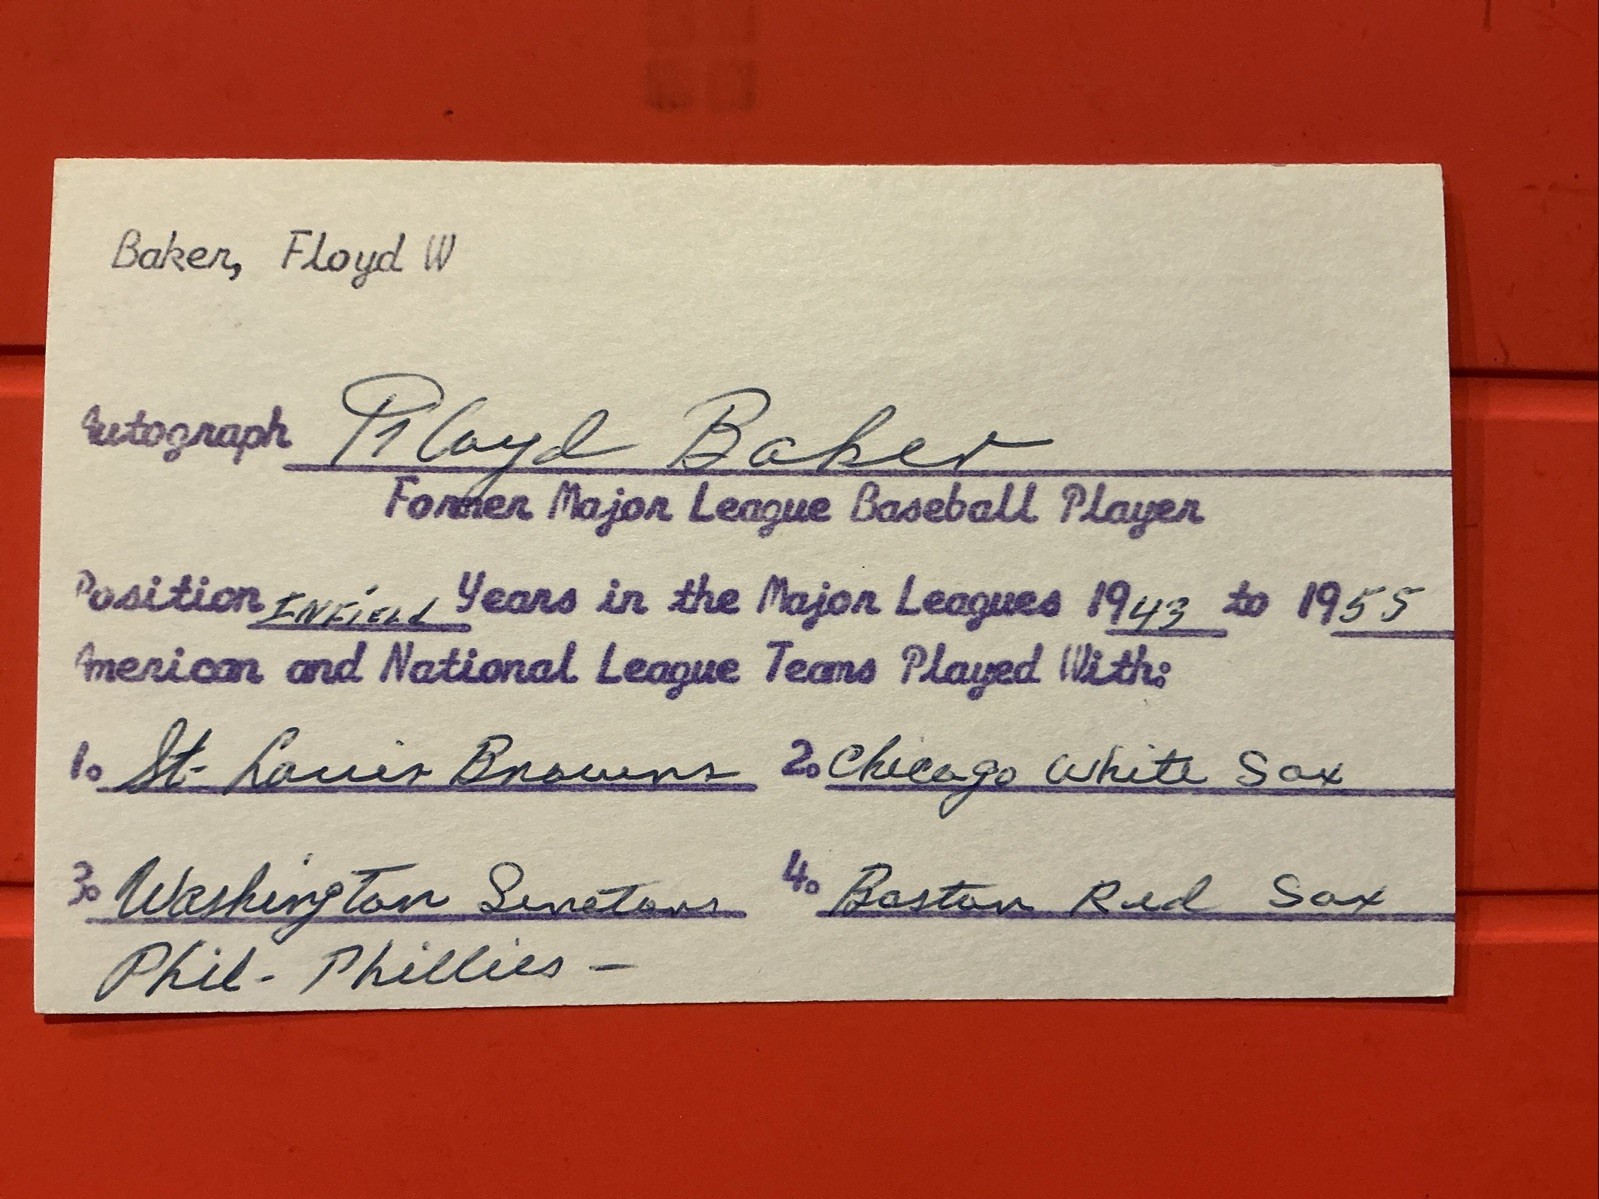 Baker, Floyd W
Autograph Floyd Baker
Former Major League Baseball Player
Position INFIELD Years in the Major Leagues 1943 to 1955
American and National League Teams Played With:
1. St. Louis Browns 2. Chicago White Sox
3. Washington Senators 4. Boston Red Sox
Phil- Phillies -